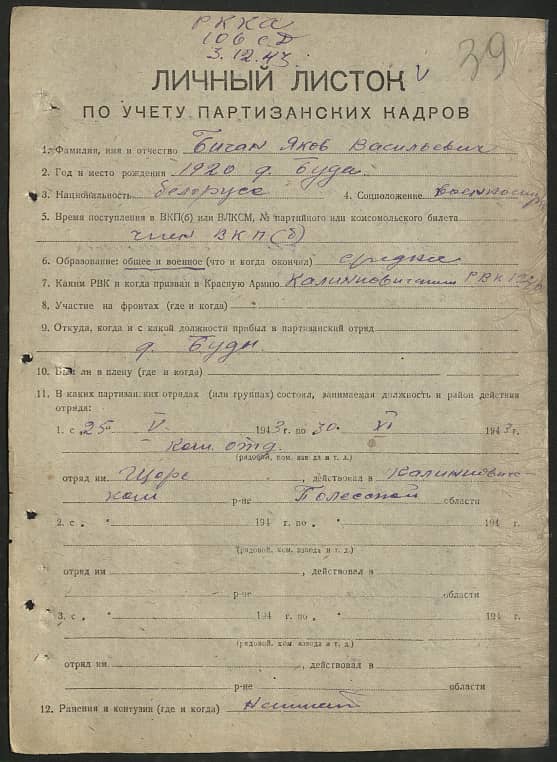 РККА
106 сД
3.12.43.
39
ЛИЧНЫЙ ЛИСТОК
ПО УЧЕТУ ПАРТИЗАНСКИХ КАДРОВ
1. Фамилия, имя и отчество Бичан Яков Васильевич
2. Год и место рождения 1920 д. Буда
3. Национальность белорусс 4. Соцположение
5. Время поступления в ВКП(б) или ВЛКСМ, № партийного или комсомольского билета
член ВКП(б)
6. Образование: общее и военное (что и когда окончил) среднее
7. Каким РВК и когда призван в Красную Армию Калинковичским РВК
8. Участие на фронтах (где и когда)
9. Откуда, когда и с какой должности прибыл в партизанский отряд
д. Буды
10. Был ли в плену (где и когда)
11. В каких партизанских отрядах (или группах) состоял, занимаемая должность и район действия
отряда:
1. с 25 V 1943 г. по 30 XI 1943 г.
Ком. отд.
(рядовой, ком. взвода и т. д.)
отряд им Щорс, действовал в Калинкович-
ком р-не Полесской области
2. с " 194 г. по " 194 г.
(рядовой, ком. взвода и т. д.)
отряд им , действовал в
р-не области
3. с " 194 г. по " 194 г.
(рядовой, ком. взвода и т. д.)
отряд им , действовал в
р-не области
12. Ранения и контузии (где и когда)